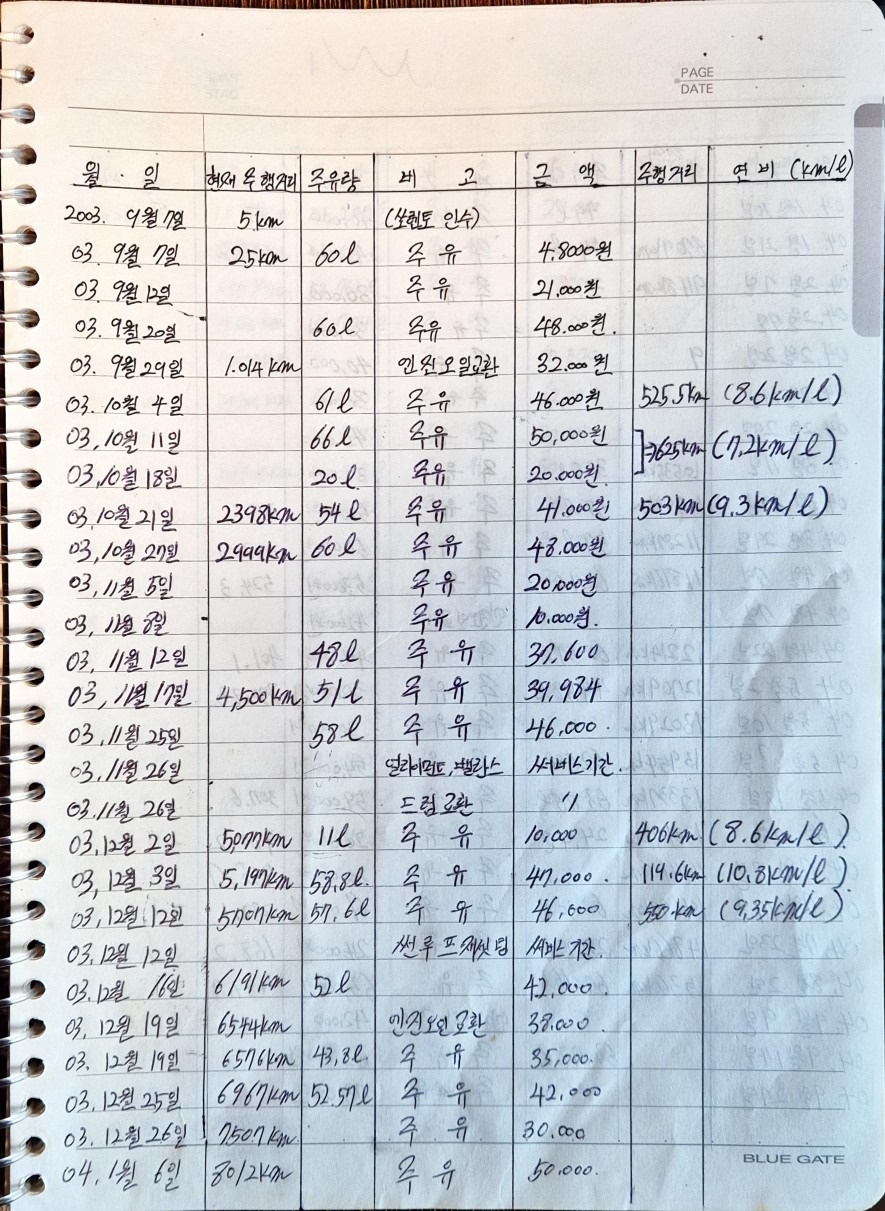 PAGE
DATE
월 · 일 현재 주행거리 주유량 비 고 금 액 주행거리 연 비 (km/l)
2003. 9월 7일 5km (쏘렌토 인수)
03. 9월 7일 25km 60l 주 유 4.8000원
03. 9월 12일 주 유 21.000원
03. 9월 20일 60l 주유 48.000원.
03. 9월 29일 1.014km 엔진오일교환 32.000원
03. 10월 4일 61l 주유 46.000원 525.5km (8.6km/l)
03, 10월 11일 66l 주유 50,000원 ]⇒625km (7,2km/l)
03, 10월 18일 20l 주유 20.000원.
03, 10월 21일 2398km 54l 주유 41.000원 503km (9.3km/l)
03, 10월 27일 2999km 60l 주유 48.000원
03, 11월 5일 주유 20.000원
03, 11월 8일 주유 10.000원.
03, 11월 12일 48l 주 유 37,600
03, 11월 17일 4,500km 51l 주 유 39,984
03, 11월 25일 58l 주 유 46,000.
03, 11월 26일 얼라이먼트, 밸런스 써비스기간.
03. 11월 26일 드럼교환 〃
03, 12월 2일 5077km 11l 주 유 10,000 406km (8.6km/l)
03, 12월 3일 5,197km 58.8l. 주 유 47,000. 119.6km (10.8km/l)
03, 12월 12일 5707km 57,6l 주 유 46,600 550km (9,35km/l)
03, 12월 12일 썬루프 써비스기간.
03. 12월 16일 6191km 52l 42,000.
03, 12월 19일 6544km 엔진오일교환 38.000.
03. 12월 19일 6576km 43,8l. 주 유 35,000.
03, 12월 25일 6967km 52.57l 주 유 42,000
03, 12월 26일 7507km 주 유 30.000
04, 1월 6일 8012km 주 유 50.000.
BLUE GATE